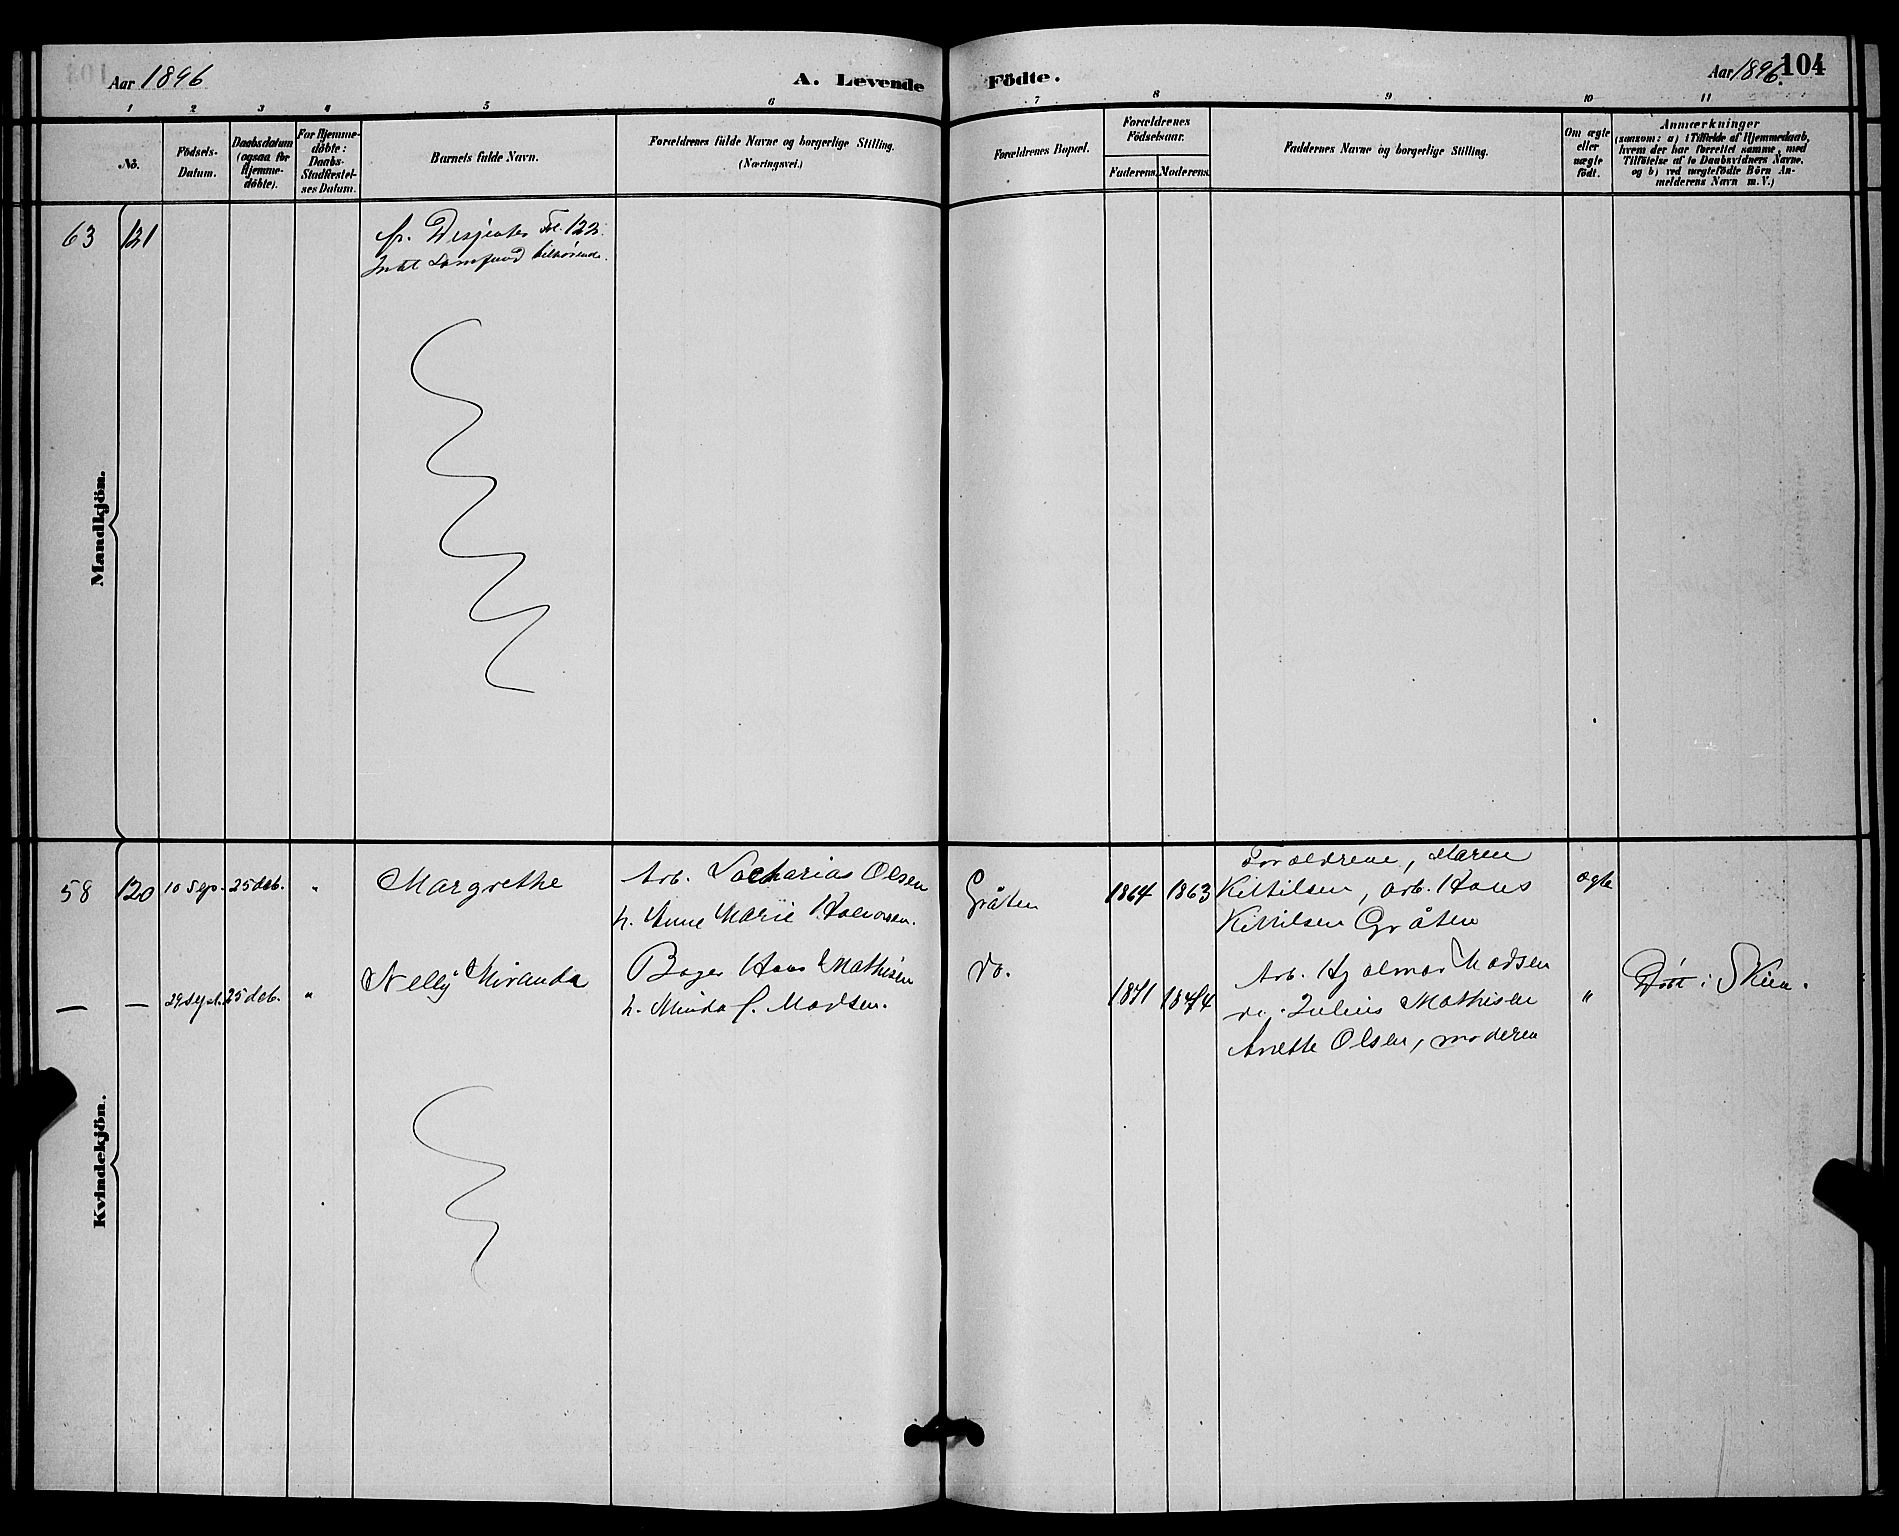 Aar 1896
A. Levende
Födte.
Aar 1896.
104
1 2 3 4 5 6 7 8 9 10 11
No.
Födsels-
Datum.
Daabsdatum
(ogsaa for
Hjemme-
döbte).
For Hjemme-
döbte:
Daabs-
Stadfæstel-
ses Datum.
Barnets fulde Navn.
Forældrenes fulde Navne og borgerlige Stilling.
(Næringsvei.)
Forældrenes Bopæl.
Forældrenes
Födselsaar.
Faderens. Moderens.
Faddernes Navne og borgerlige Stilling.
Om ægte
eller
uægte
födt.
Anmærkninger
(saasom: a) i Tilfælde af Hjemmedaab,
hvem der har forrettet samme, med
Tilföielse af to Daabsvidners Navne.
og b) ved uægtefödte Börn An-
melderens Navn m. V.)
Mandkjön.
63 121
fr. Fol. 122.
tilhörende.
Kvindekjön.
58 120 10 Sep. 25 deb. " Margrethe
Arb. Zacharias Olsen
h. Anne Marie Halvorsen.
Gråten 1864 1863
Forældrene, Maren
Kittilsen, arb. Hans
Kittilsen Gråten
ægte
— — 29 Sept. 25 deb. " Nelly Miranda
Bager Hans Mathisen
h. Minda f. Madsen.
do. 1871 1874
Arb. Hjalmar Madsen
do. Julius Mathisen
Anette Olsen, moderen
" Döbt i Skien.